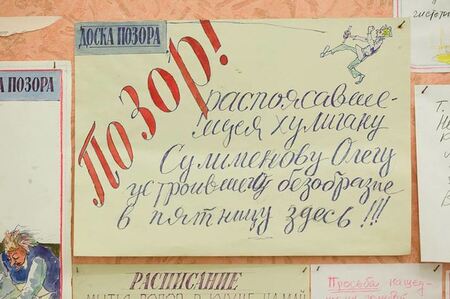 ДОСКА ПОЗОРА
ПОЗОР!
распоясавше-
муся хулигану
Сулименову Олегу
устроившему безобразие
в пятницу здесь!!!
ДОСКА ПОЗОРА
РАСПИСАНИЕ
Просьба